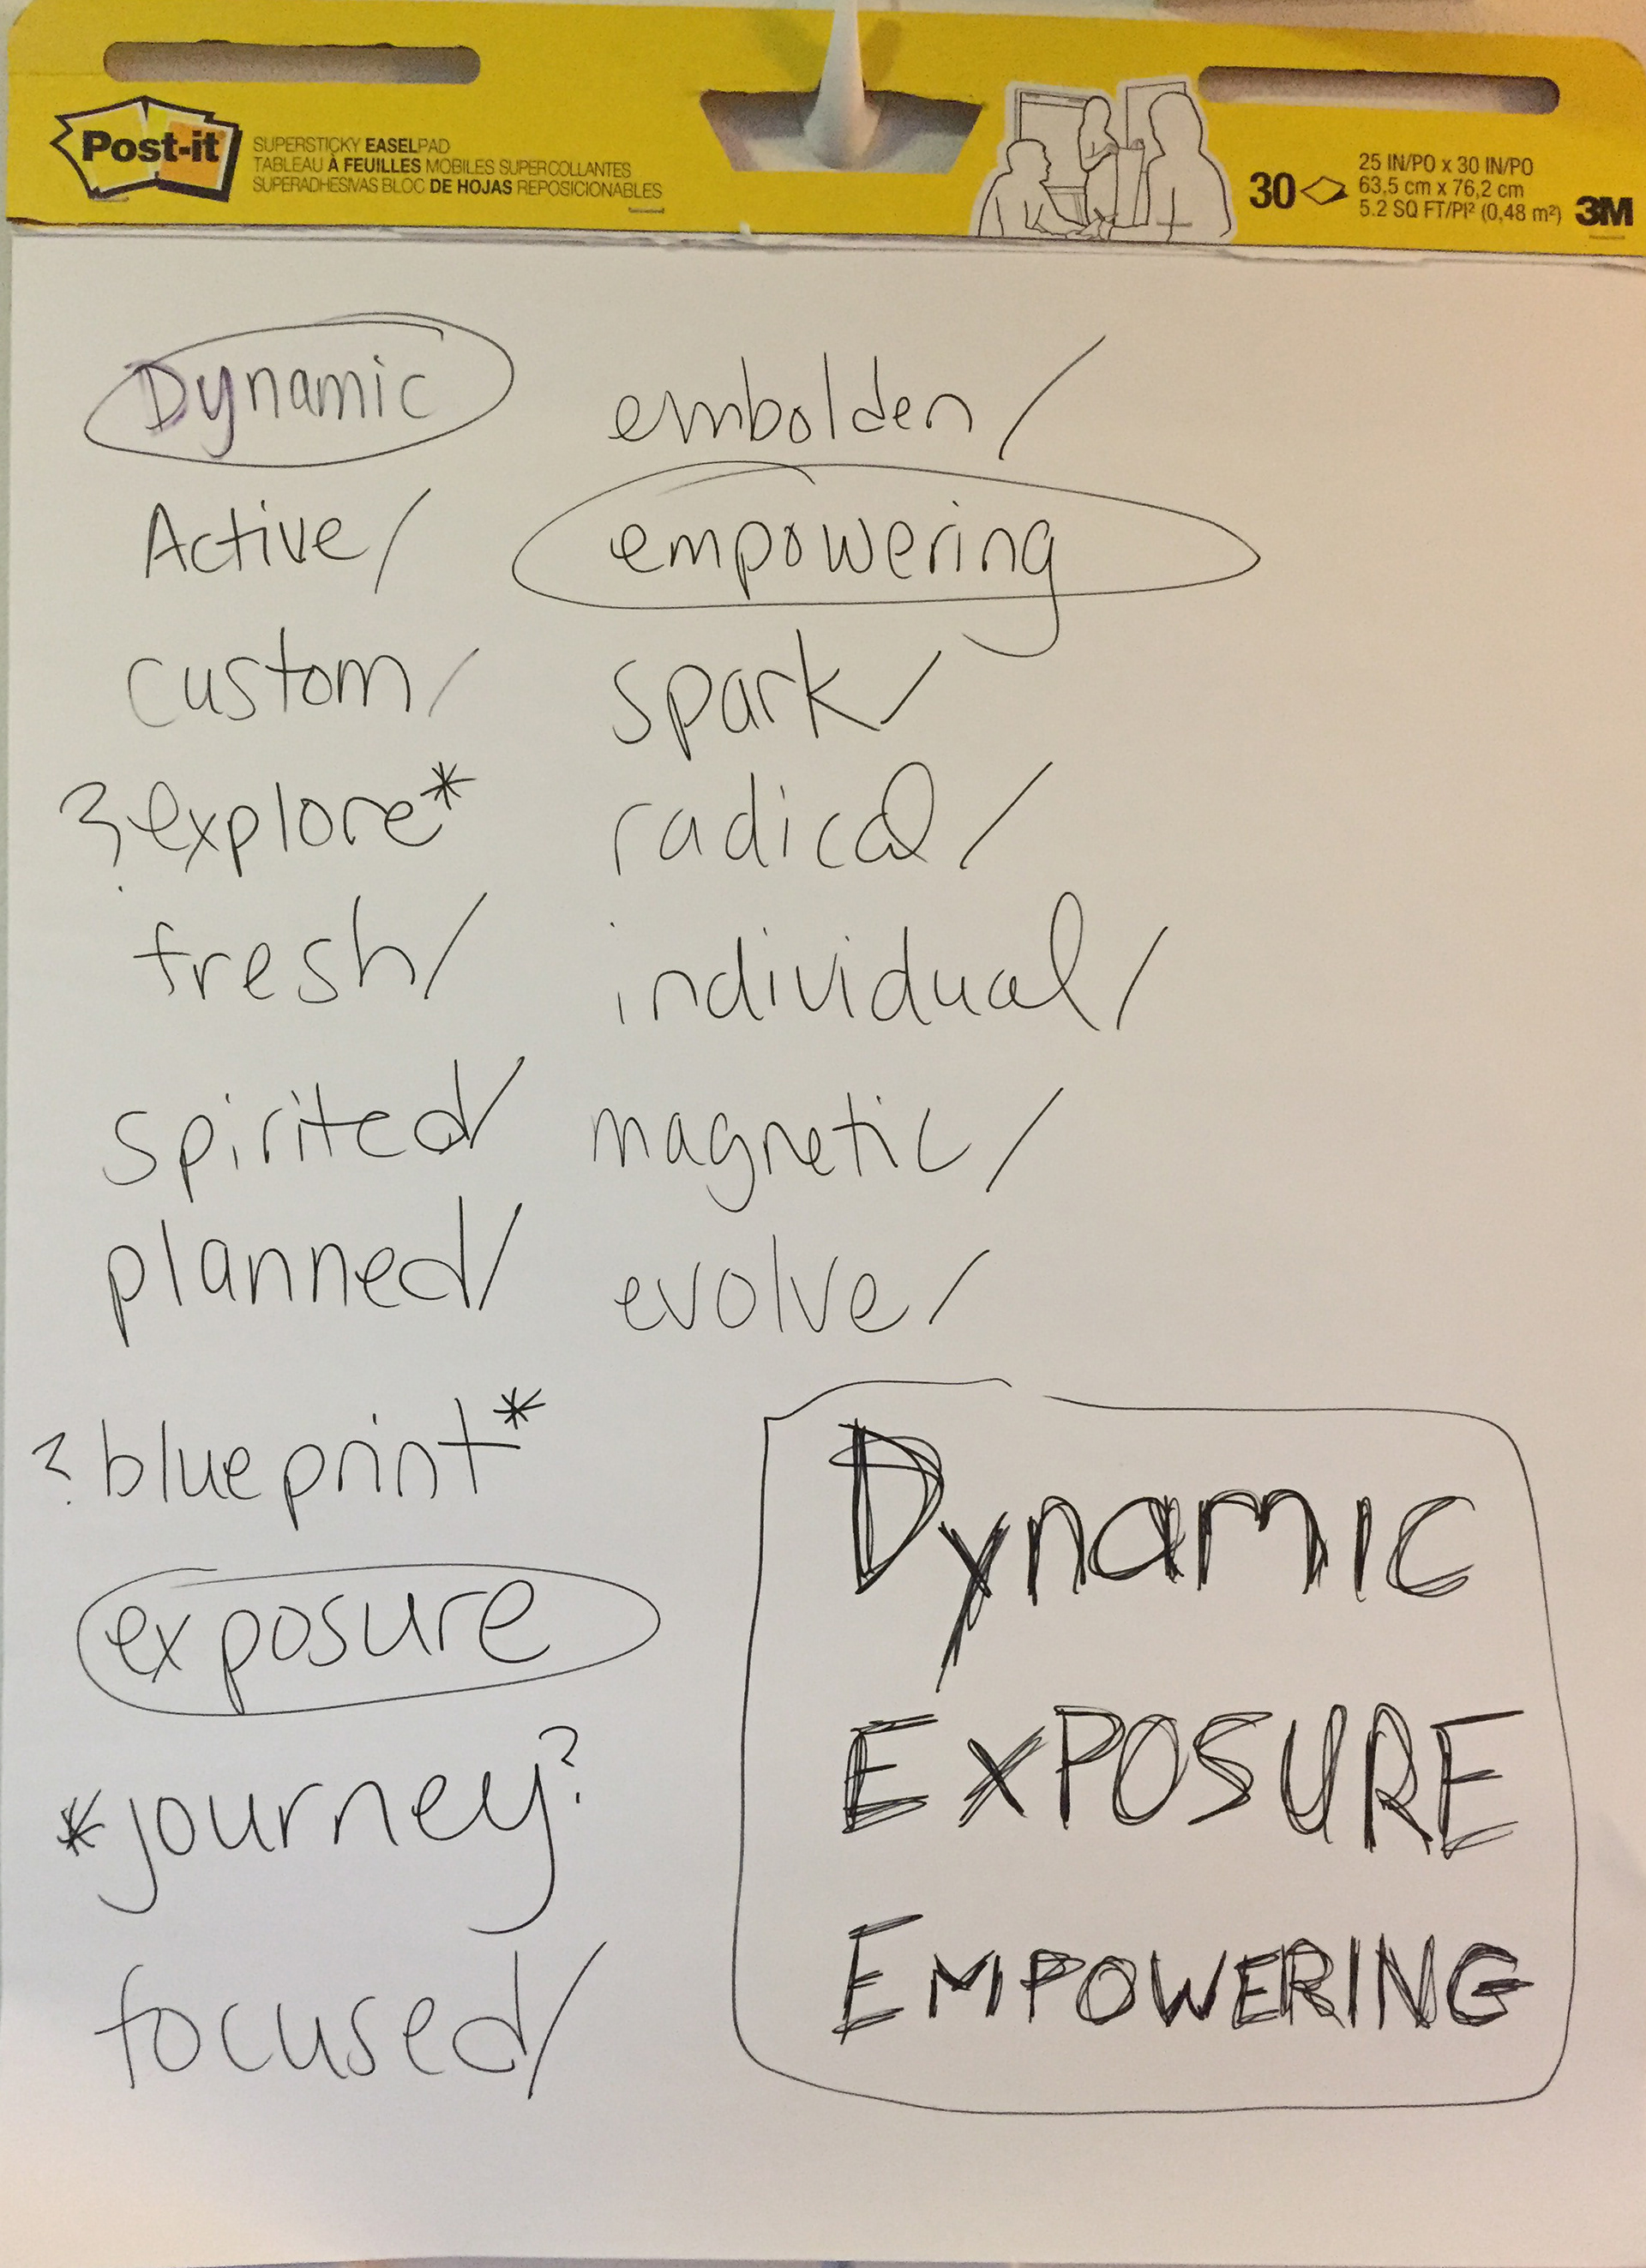 Post-it
SUPERSTICKY EASELPAD
TABLEAU À FEUILLES MOBILES SUPERCOLLANTES
SUPERADHESIVAS BLOC DE HOJAS REPOSICIONABLES
30
25 IN/PO x 30 IN/PO
63,5 cm x 76,2 cm
5.2 SQ FT/PI² (0,48 m²)
3M
Dynamic
Active/
custom/
? explore*
fresh/
spirited/
planned/
? blueprint*
exposure
*journey?
focused/
embolden/
empowering
spark/
radical/
individual/
magnetic/
evolve/
Dynamic
EXPOSURE
EMPOWERING